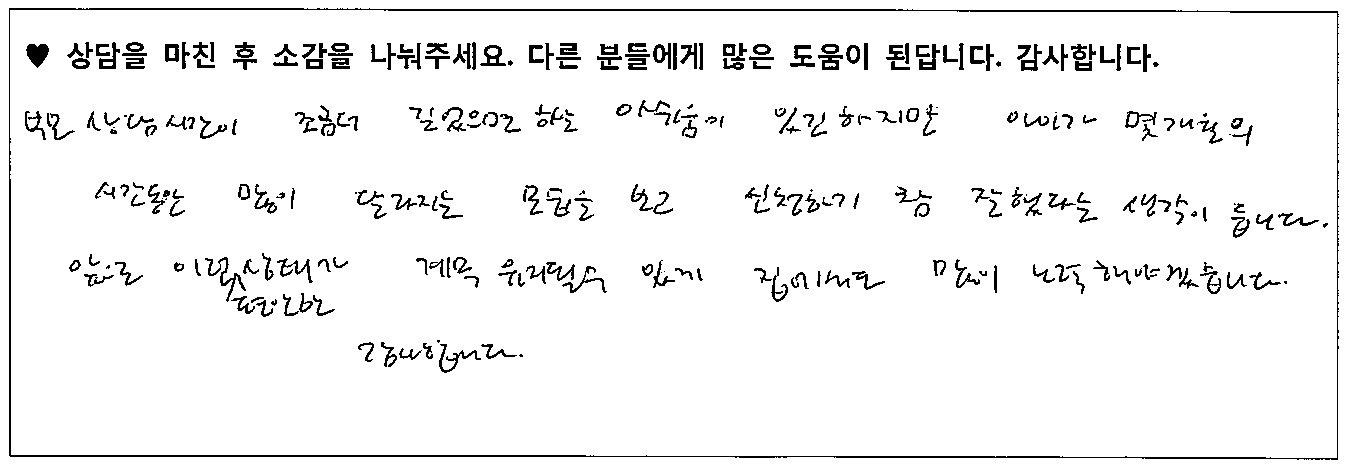 ♥ 상담을 마친 후 소감을 나눠주세요. 다른 분들에게 많은 도움이 된답니다. 감사합니다.
부모 상담시간이 조금더 길었으면 하는 아쉬움이 있긴하지만 아이가 몇개월의
시간동안 많이 달라지는 모습을 보고 신청하기 참 잘했다는 생각이 듭니다.
앞으로 이런 편안한 상태가 계속 유지될수 있게 집에서도 많이 노력해야겠습니다.
감사합니다.